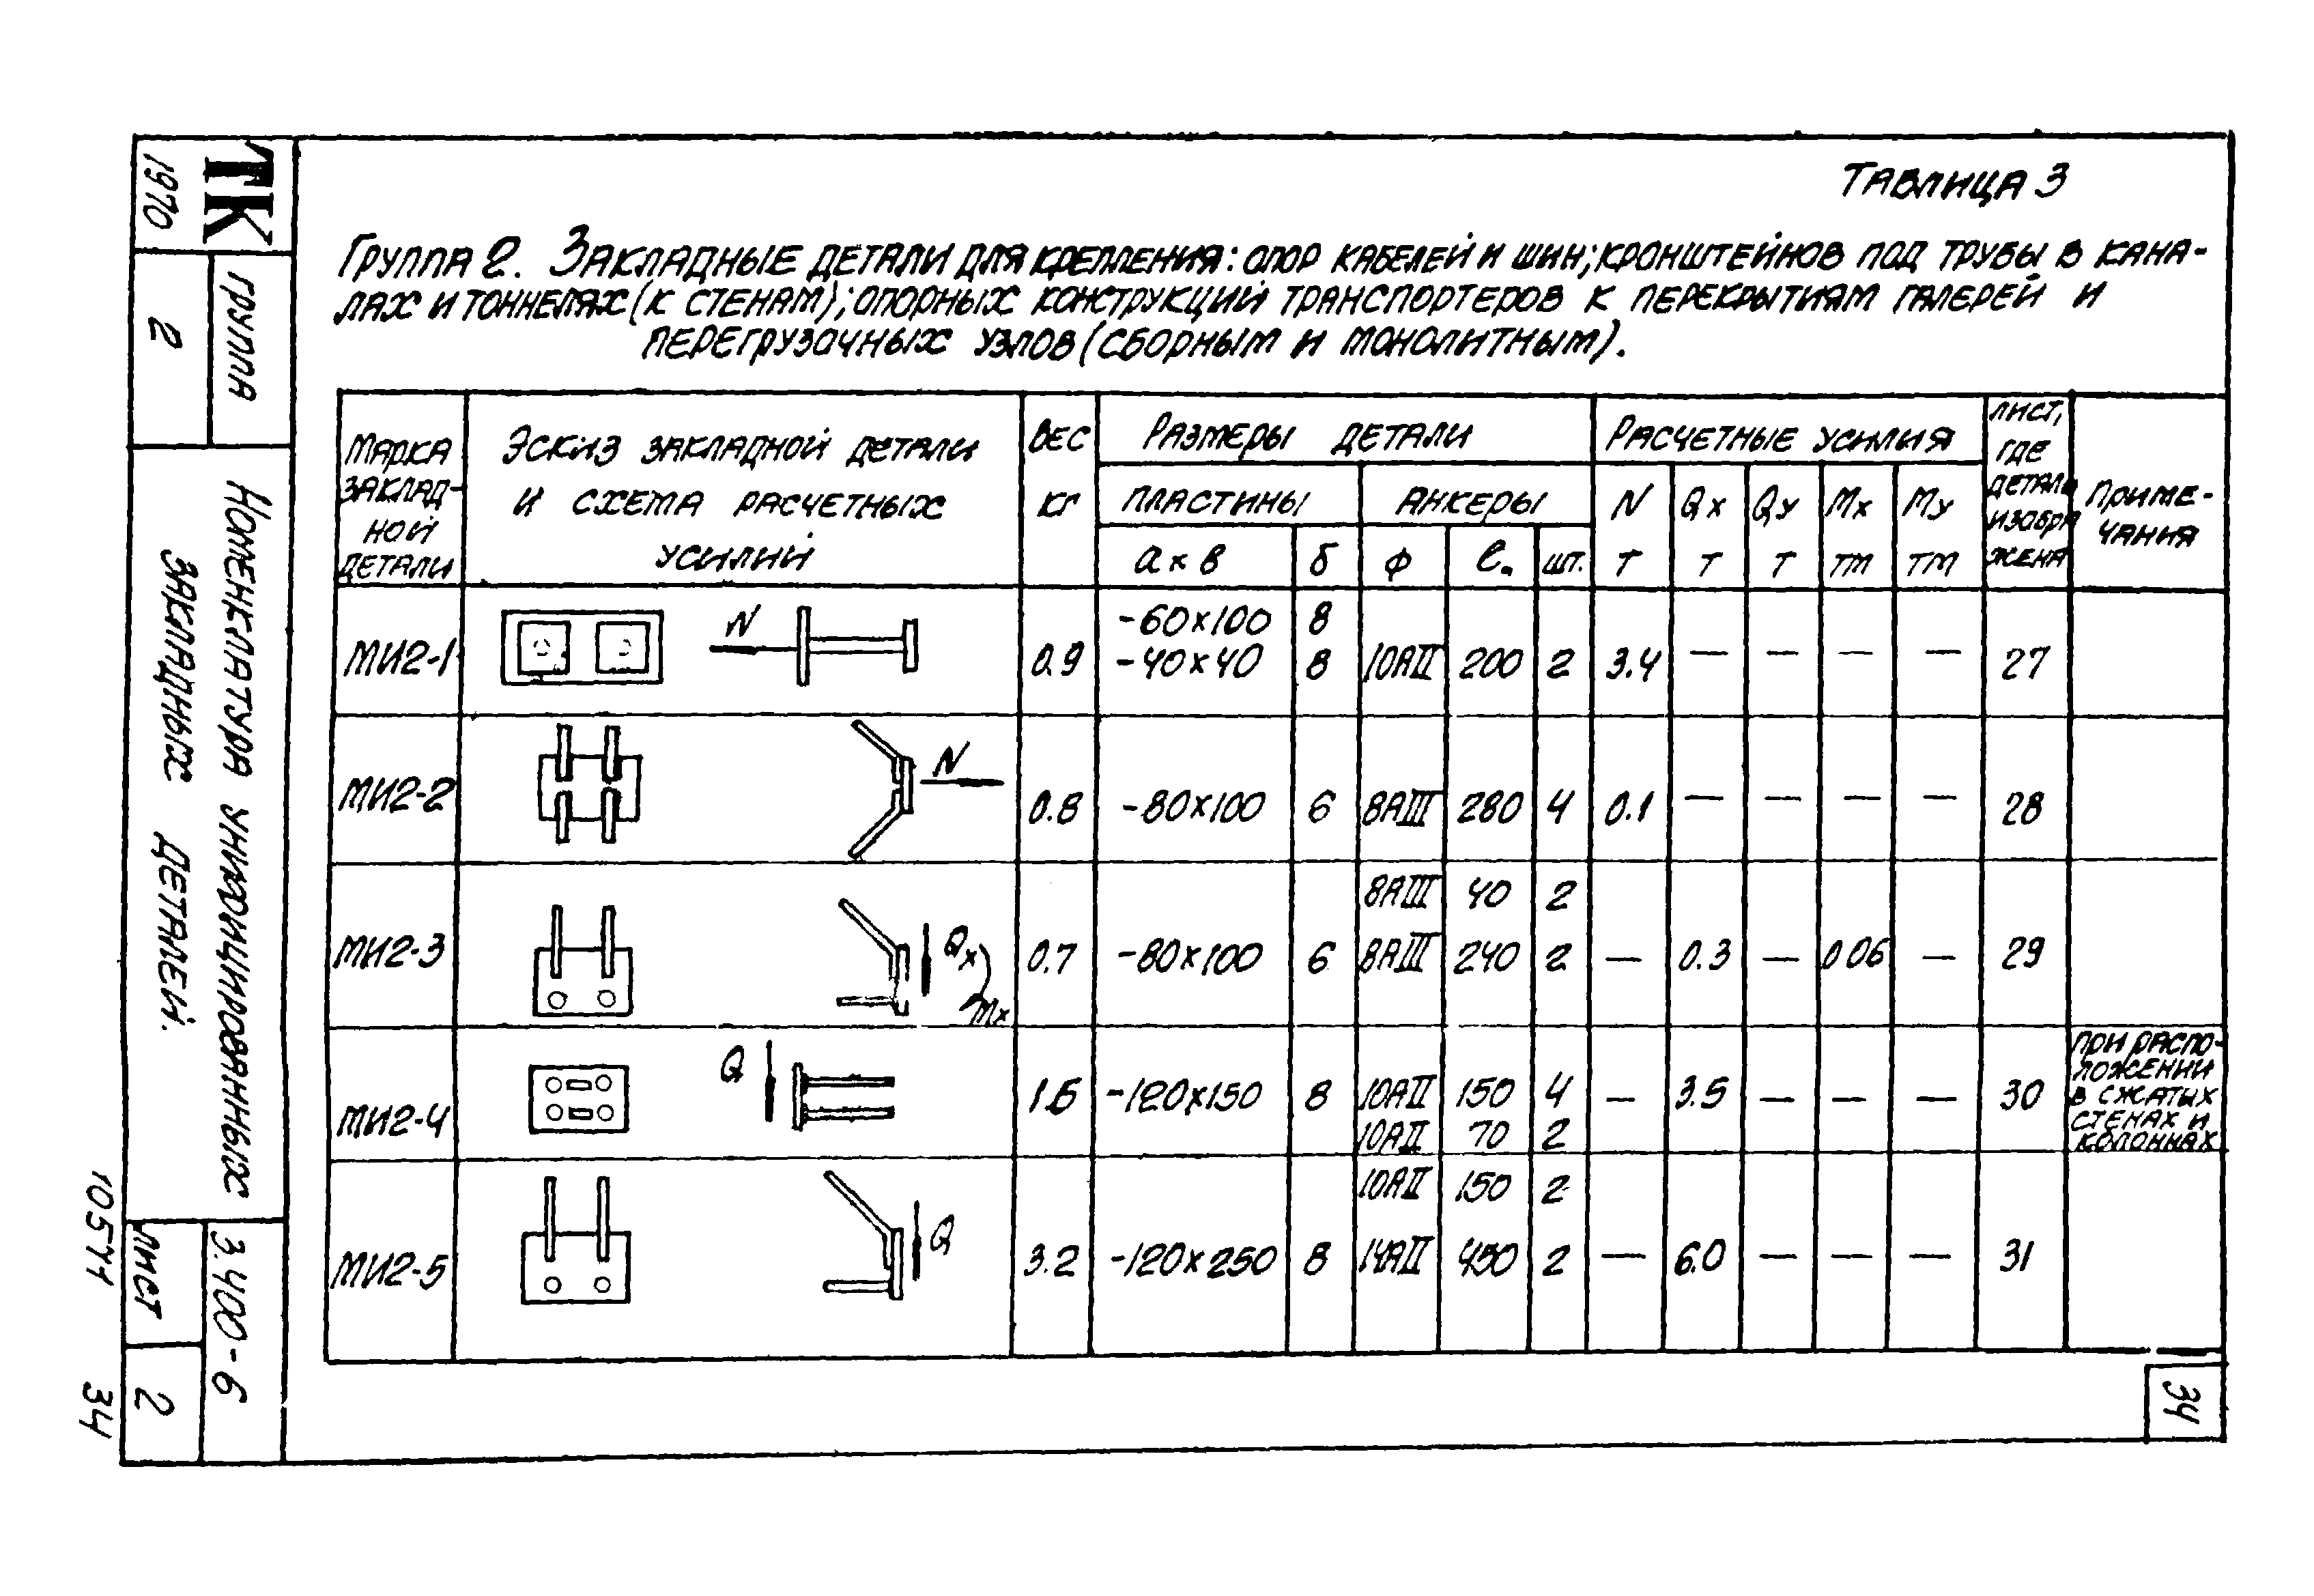 ТК
1970
ГРУППА
2
НОМЕНКЛАТУРА УНИФИЦИРОВАННЫХ
ЗАКЛАДНЫХ ДЕТАЛЕЙ.
3.400-6
ЛИСТ
2
34
ТАБЛИЦА 3
ГРУППА 2. ЗАКЛАДНЫЕ ДЕТАЛИ ДЛЯ КРЕПЛЕНИЯ: ОПОР КАБЕЛЕЙ И ШИН; КРОНШТЕЙНОВ ПОД ТРУБЫ В КАНА-
ЛАХ И ТОННЕЛЯХ (К СТЕНАМ); ОПОРНЫХ КОНСТРУКЦИЙ ТРАНСПОРТЕРОВ К ПЕРЕКРЫТИЯМ ГАЛЕРЕЙ И
ПЕРЕГРУЗОЧНЫХ УЗЛОВ (СБОРНЫМ И МОНОЛИТНЫМ).
МАРКА
ЗАКЛАД-
НОЙ
ДЕТАЛИ
ЭСКИЗ ЗАКЛАДНОЙ ДЕТАЛИ
И СХЕМА РАСЧЕТНЫХ
УСИЛИЙ
ВЕС
КГ
РАЗМЕРЫ ДЕТАЛИ
ПЛАСТИНЫ
АНКЕРЫ
а × в
б
Ф
ℓ
ШТ.
РАСЧЕТНЫЕ УСИЛИЯ
N Qx Qу Mx Mу
Т Т Т ТМ ТМ
ЛИСТ,
ГДЕ
ДЕТАЛЬ
ИЗОБРА
ЖЕНА
ПРИМЕ-
ЧАНИЯ
N
-60×100 8
МИ2-1 0.9 -40×40 8 10АII 200 2 3.4 — — — — 27
N
МИ2-2 0.8 -80×100 6 8АIII 280 4 0.1 — — — — 28
8АIII 40 2
Qx
Mx
МИ2-3 0.7 -80×100 6 8АIII 240 2 — 0.3 — 0.06 — 29
Q
МИ2-4 -120×150 8 10АII 150 4 — 3.5 — — — 30
10АII 70 2
ПРИ РАСПО-
ЛОЖЕНИИ
В СЖАТЫХ
СТЕНАХ И
КОЛОННАХ
10АII 150 2
Q
МИ2-5 3.2 -120×250 8 14АII 450 2 — 6.0 — — — 31
34